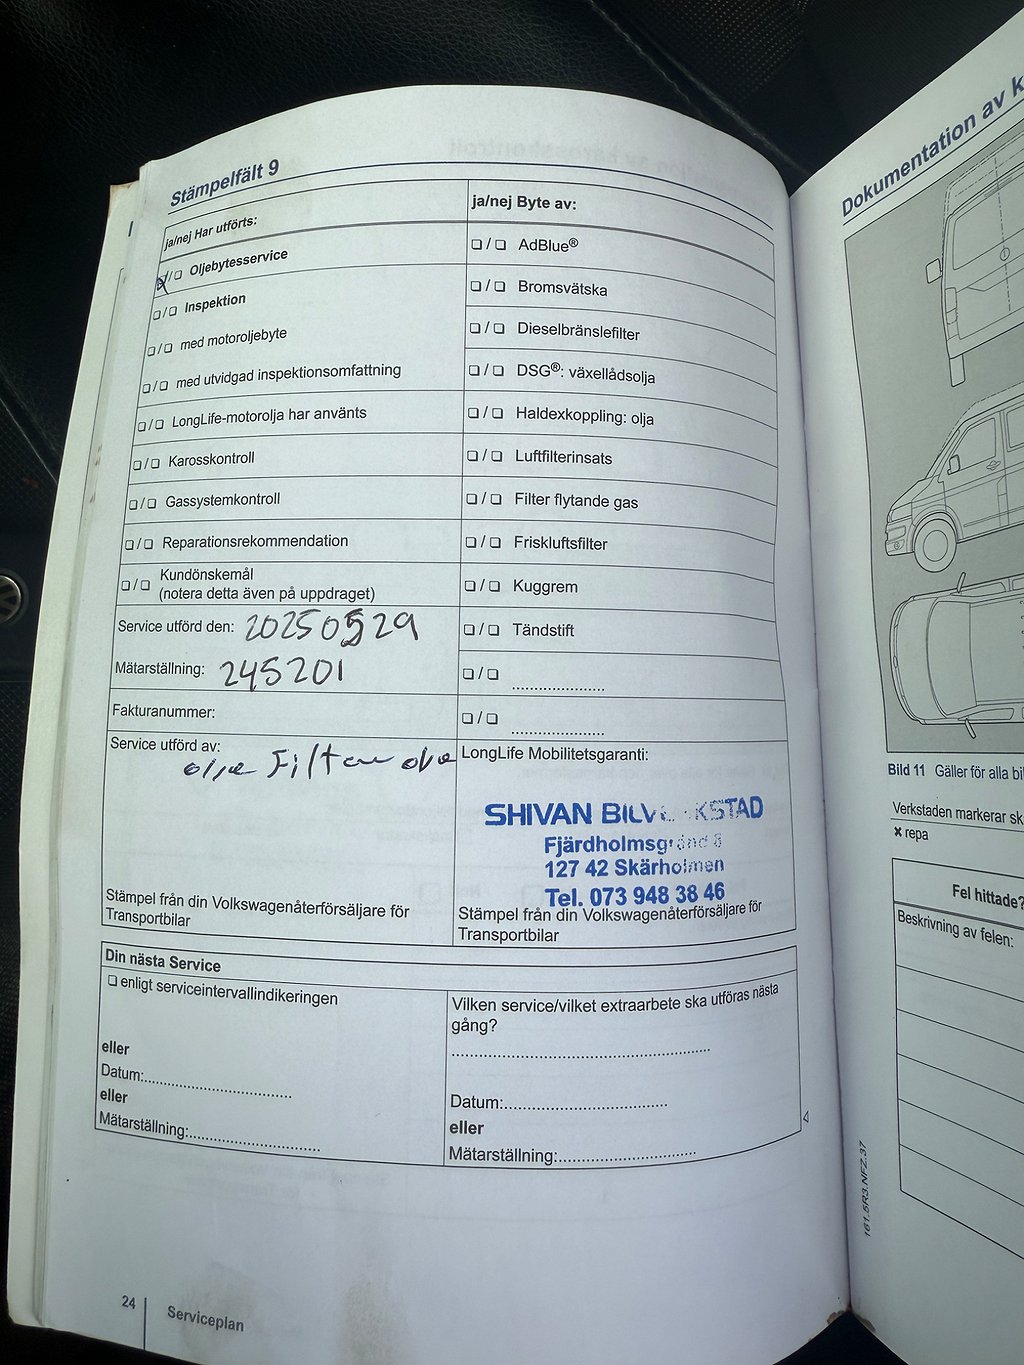 Stämpelfält 9
ja/nej Har utförts:
❏/❏ Oljebytesservice
❏/❏ Inspektion
❏/❏ med motoroljebyte
❏/❏ med utvidgad inspektionsomfattning
❏/❏ LongLife-motorolja har använts
❏/❏ Karosskontroll
❏/❏ Gassystemkontroll
❏/❏ Reparationsrekommendation
❏/❏ Kundönskemål
(notera detta även på uppdraget)
Service utförd den: 20250529
Mätarställning: 245201
Fakturanummer:
Service utförd av:
olja Filter
Stämpel från din Volkswagenåterförsäljare för
Transportbilar
ja/nej Byte av:
❏/❏ AdBlue®
❏/❏ Bromsvätska
❏/❏ Dieselbränslefilter
❏/❏ DSG®: växellådsolja
❏/❏ Haldexkoppling: olja
❏/❏ Luftfilterinsats
❏/❏ Filter flytande gas
❏/❏ Friskluftsfilter
❏/❏ Kuggrem
❏/❏ Tändstift
❏/❏ ......................
❏/❏ ......................
LongLife Mobilitetsgaranti:
SHIVAN
Fjärdholmsgränd 8
127 42 Skärholmen
Tel. 073 948 38 46
Stämpel från din Volkswagenåterförsäljare för
Transportbilar
Din nästa Service
❏ enligt serviceintervallindikeringen
eller
Datum:...................................
eller
Mätarställning:...............................
Vilken service/vilket extraarbete ska utföras nästa
gång?
..............................................................
Datum:.......................................
eller
Mätarställning:.................................
24 Serviceplan
Dokumentation av
Bild 11 Gäller för alla
Verkstaden markerar
✖ repa
Fel hittade?
Beskrivning av felen:
161.5R3.NFZ.37